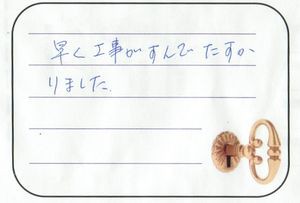 早く工事がすんでたすか
りました。